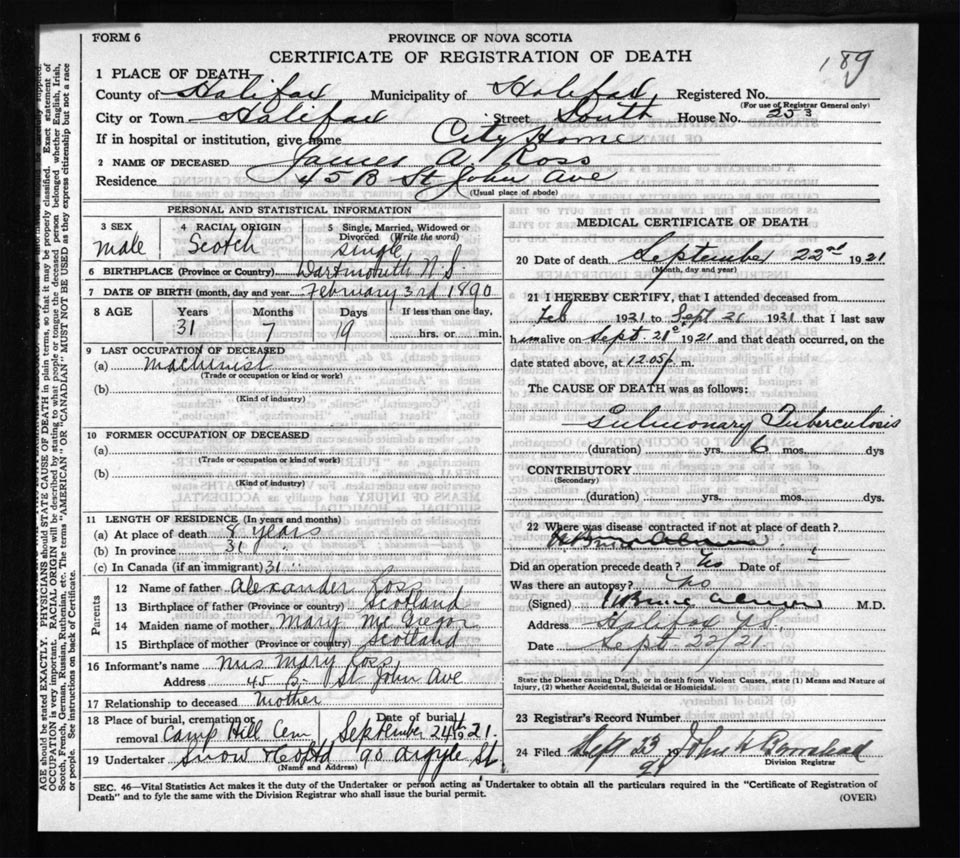 FORM 6
PROVINCE OF NOVA SCOTIA
CERTIFICATE OF REGISTRATION OF DEATH
189
1 PLACE OF DEATH
County of Halifax Municipality of Halifax Registered No.
(For use of Registrar General only)
City or Town Halifax Street South House No. 253
If in hospital or institution, give name City Home
2 NAME OF DECEASED James A Ross
Residence 45 B St John Ave
(Usual place of abode)
PERSONAL AND STATISTICAL INFORMATION
3 SEX male
4 RACIAL ORIGIN Scotch
5 Single, Married, Widowed or Divorced (Write the word) single
6 BIRTHPLACE (Province or Country) Dartmouth N.S.
7 DATE OF BIRTH (month, day and year) February 3rd 1890
8 AGE Years Months Days If less than one day,
31 7 19 hrs. or min.
9 LAST OCCUPATION OF DECEASED
(a) Machinist
(Trade or occupation or kind or work)
(b)
(Kind of industry)
10 FORMER OCCUPATION OF DECEASED
(a)
(Trade or occupation or kind of work)
(b)
(Kind of industry)
11 LENGTH OF RESIDENCE (In years and months)
(a) At place of death 8 years
(b) In province 31 "
(c) In Canada (if an immigrant) 31 "
Parents
12 Name of father Alexander Ross
13 Birthplace of father (Province or country) Scotland
14 Maiden name of mother Mary McGregor
15 Birthplace of mother (Province or country) Scotland
16 Informant's name Mrs Mary Ross
Address 45 B. St John Ave
17 Relationship to deceased Mother
18 Place of burial, cremation or removal Camp Hill Cem Date of burial September 24th 1921
19 Undertaker Snow & Co Ltd 90 Argyle St
(Name and Address)
MEDICAL CERTIFICATE OF DEATH
20 Date of death September 22nd 1921
(Month, day and year)
21 I HEREBY CERTIFY, that I attended deceased from
Feb 1921 to Sept 21 1921 that I last saw
him alive on Sept 21st 1921 and that death occurred, on the
date stated above, at 12.05 m.
The CAUSE OF DEATH was as follows:
Pulmonary Tuberculosis
(duration) yrs. 6 mos. dys
CONTRIBUTORY
(Secondary)
(duration) yrs. mos. dys.
22 Where was disease contracted if not at place of death?
Did an operation precede death? No Date of
Was there an autopsy? No
(Signed) M.D.
Address Halifax N.S.
Date Sept. 22/21.
State the Disease causing Death, or in death from Violent Causes, state (1) Means and Nature of
Injury, (2) whether Accidental, Suicidal or Homicidal.
23 Registrar's Record Number
24 Filed Sept 23 1921 John
Division Registrar
SEC. 46—Vital Statistics Act makes it the duty of the Undertaker or person acting as Undertaker to obtain all the particulars required in the "Certificate of Registration of
Death" and to fyle the same with the Division Registrar who shall issue the burial permit.
(OVER)
AGE should be stated EXACTLY. PHYSICIANS should STATE CAUSE OF DEATH in plain terms, so that it may be properly classified. Exact statement of
OCCUPATION is very important. RACIAL ORIGIN will be described by stating to what people or tongue the deceased person belonged whether English, Irish,
Scotch, French, German, Russian, Ruthenian, etc. The terms "AMERICAN" OR "CANADIAN" MUST NOT BE USED as they express citizenship but not a race
or people. See instructions on back of Certificate.